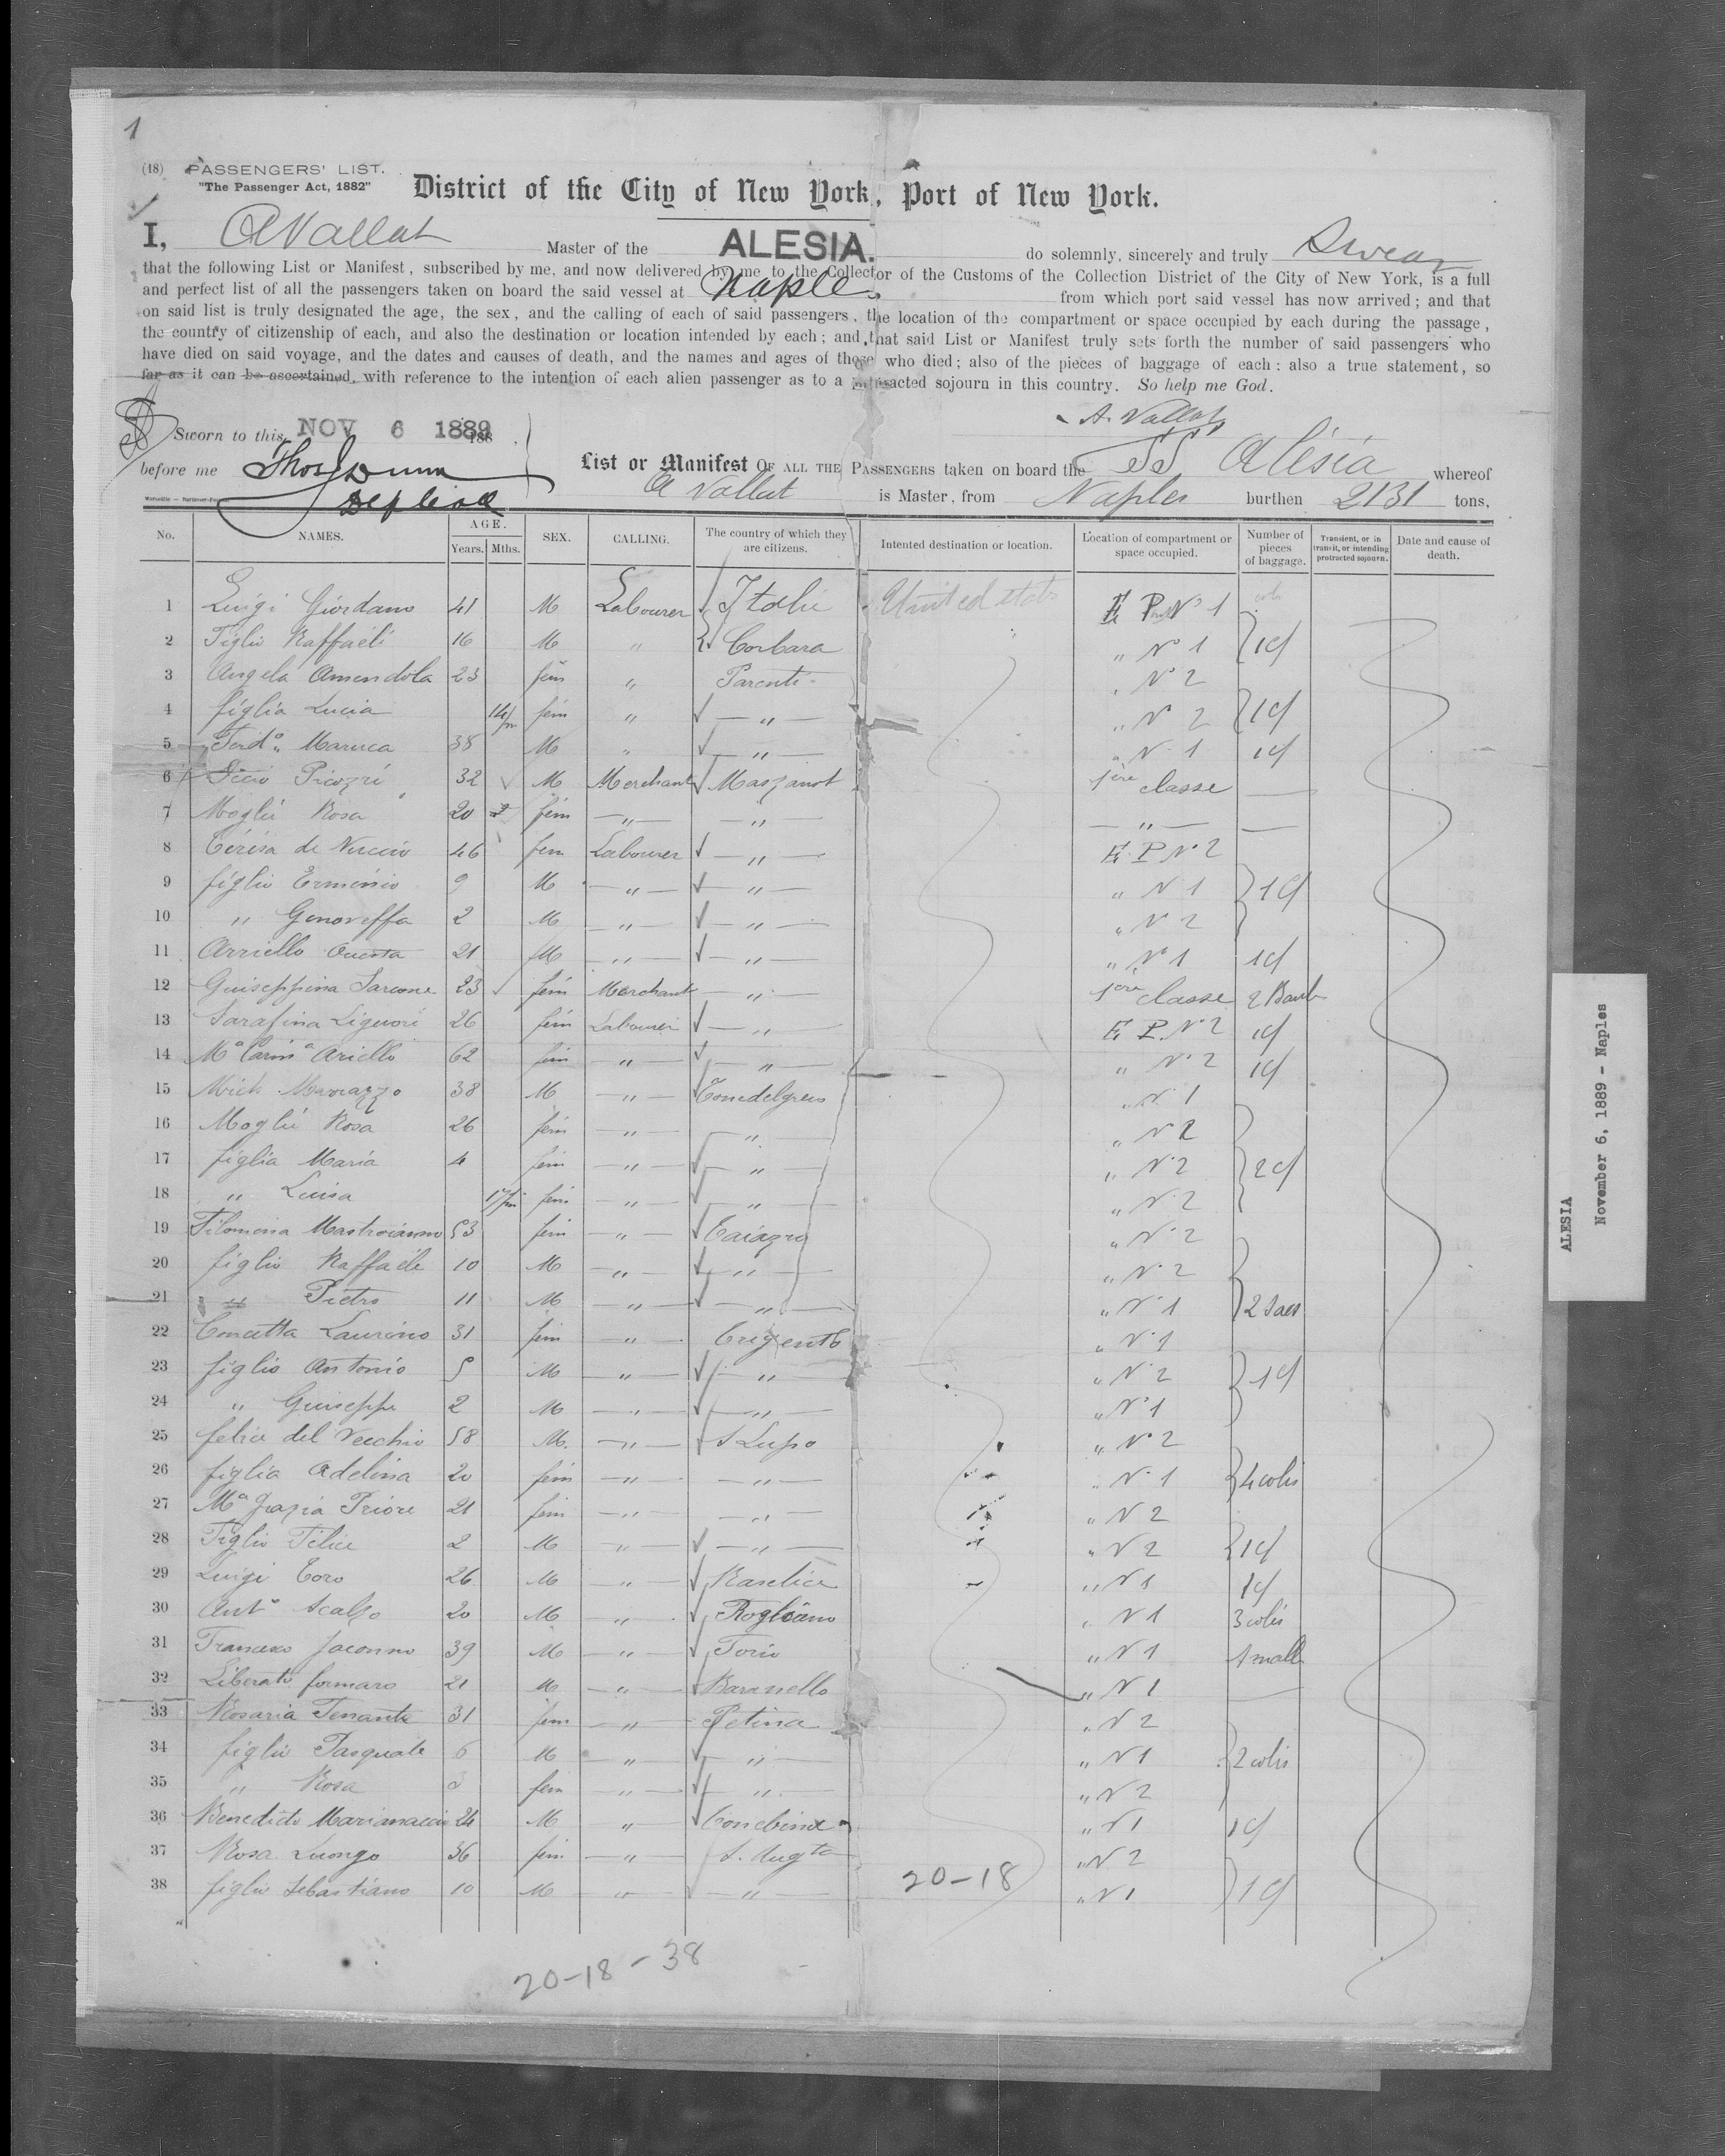 1
(18) PASSENGERS' LIST.
"The Passenger Act, 1882"
District of the City of New York, Port of New York.
I, A Vallat Master of the ALESIA. do solemnly, sincerely and truly Swear
that the following List or Manifest, subscribed by me, and now delivered by me to the Collector of the Customs of the Collection District of the City of New York, is a full
and perfect list of all the passengers taken on board the said vessel at Naples from which port said vessel has now arrived; and that
on said list is truly designated the age, the sex, and the calling of each of said passengers, the location of the compartment or space occupied by each during the passage,
the country of citizenship of each, and also the destination or location intended by each; and that said List or Manifest truly sets forth the number of said passengers who
have died on said voyage, and the dates and causes of death, and the names and ages of those who died; also of the pieces of baggage of each: also a true statement, so
far as it can be ascertained, with reference to the intention of each alien passenger as to a protracted sojourn in this country. So help me God.
A. Vallat
Sworn to this NOV 6 1889 188
before me Thos J Dunn
List or Manifest OF ALL THE PASSENGERS taken on board the SS Alésia whereof
A Vallat is Master, from Naples burthen 2131 tons,
No. NAMES. AGE. Years. Mths. SEX. CALLING. The country of which they are citizens. Intented destination or location. Location of compartment or space occupied. Number of pieces of baggage. Transient, or in transit, or intending protracted sojourn. Date and cause of death.
1 Luigi Giordano 41 M Labourer Italie United states E P N° 1
2 Figlio Raffaéli 16 M " Corbara " N° 1 1 c/
3 Angela Amendola 23 fém " Parenti " N° 2
4 figlia Lucia fém " — " — " N° 2 1 c/
5 Ferd° Maruca 38 M " — " — " N° 1 1 c/
6 Picozzi 32 M Merchant 1ère classe —
7 Moglié Rosa 20 fém — " — — " — — " — —
8 Térésa de 46 fem Labourer — " — E P N° 2
9 figlio Erminio 9 M — " — — " — " N° 1 1 c/
10 " Genoveffa 2 M — " — — " — " N° 2
11 Arriello 21 M — " — — " — " N° 1 1 c/
12 Guiseppina Sarcone 23 fém Merchant — " — 1ère classe 2
13 Sarafina Liguori 26 fém Labourer — " — E P N° 2 1 c/
14 Mª Carmª Ariello 62 fém — " — — " — " N° 2 1 c/
15 Mich 38 M — " — " N° 1
16 Moglié Rosa 26 fém — " — — " — " N° 2
17 figlia Maria 4 fém — " — — " — " N° 2 2 c/
18 " Luisa fém — " — — " — " N° 2
19 Filomena Mastroianno 53 fém — " — Caiazzo " N° 2
20 figlio Raffaéle 10 M — " — — " — " N° 2
21 " Pietro 11 M — " — — " — " N° 1 2 Sacs
22 Concetta Laurino 31 fém — " — " N° 1
23 figlio Antonio 5 M — " — — " — " N° 2 1 c/
24 " Guiseppe 2 M — " — — " — " N° 1
25 felice del Vecchio 58 M. — " — S Lupo " N° 2
26 figlia Adelina 20 fém — " — — " — " N° 1 4 colis
27 Mª Grazia Priore 21 fém — " — — " — " N 2
28 Figlio Félice 2 M — " — — " — " N 2 1 c/
29 Luigi Toro 26 M — " — Baselice " N 1 1 c/
30 Ant° Scalzo 20 M — " — Rogliano " N 1 3 colis
31 Francesco Jaconno 39 M — " — Torio " N 1 1 malle
32 Liberato formaro 21 M — " — Baranello " N 1 —
33 Rosaria Tenante 31 fém — " — Petina " N 2
34 figlio Pasquale 6 M — " — — " — " N 1 2 colis
35 " Rosa 3 fem — " — — " — " N 2
36 Benedicto 24 M " " N 1 1 c/
37 Rosa Luongo 36 fém — " — " N 2
38 figlio Sebastiano 10 M — " — — " — 20-18 " N 1 1 c/
20-18-38
ALESIA
November 6, 1889 - Naples